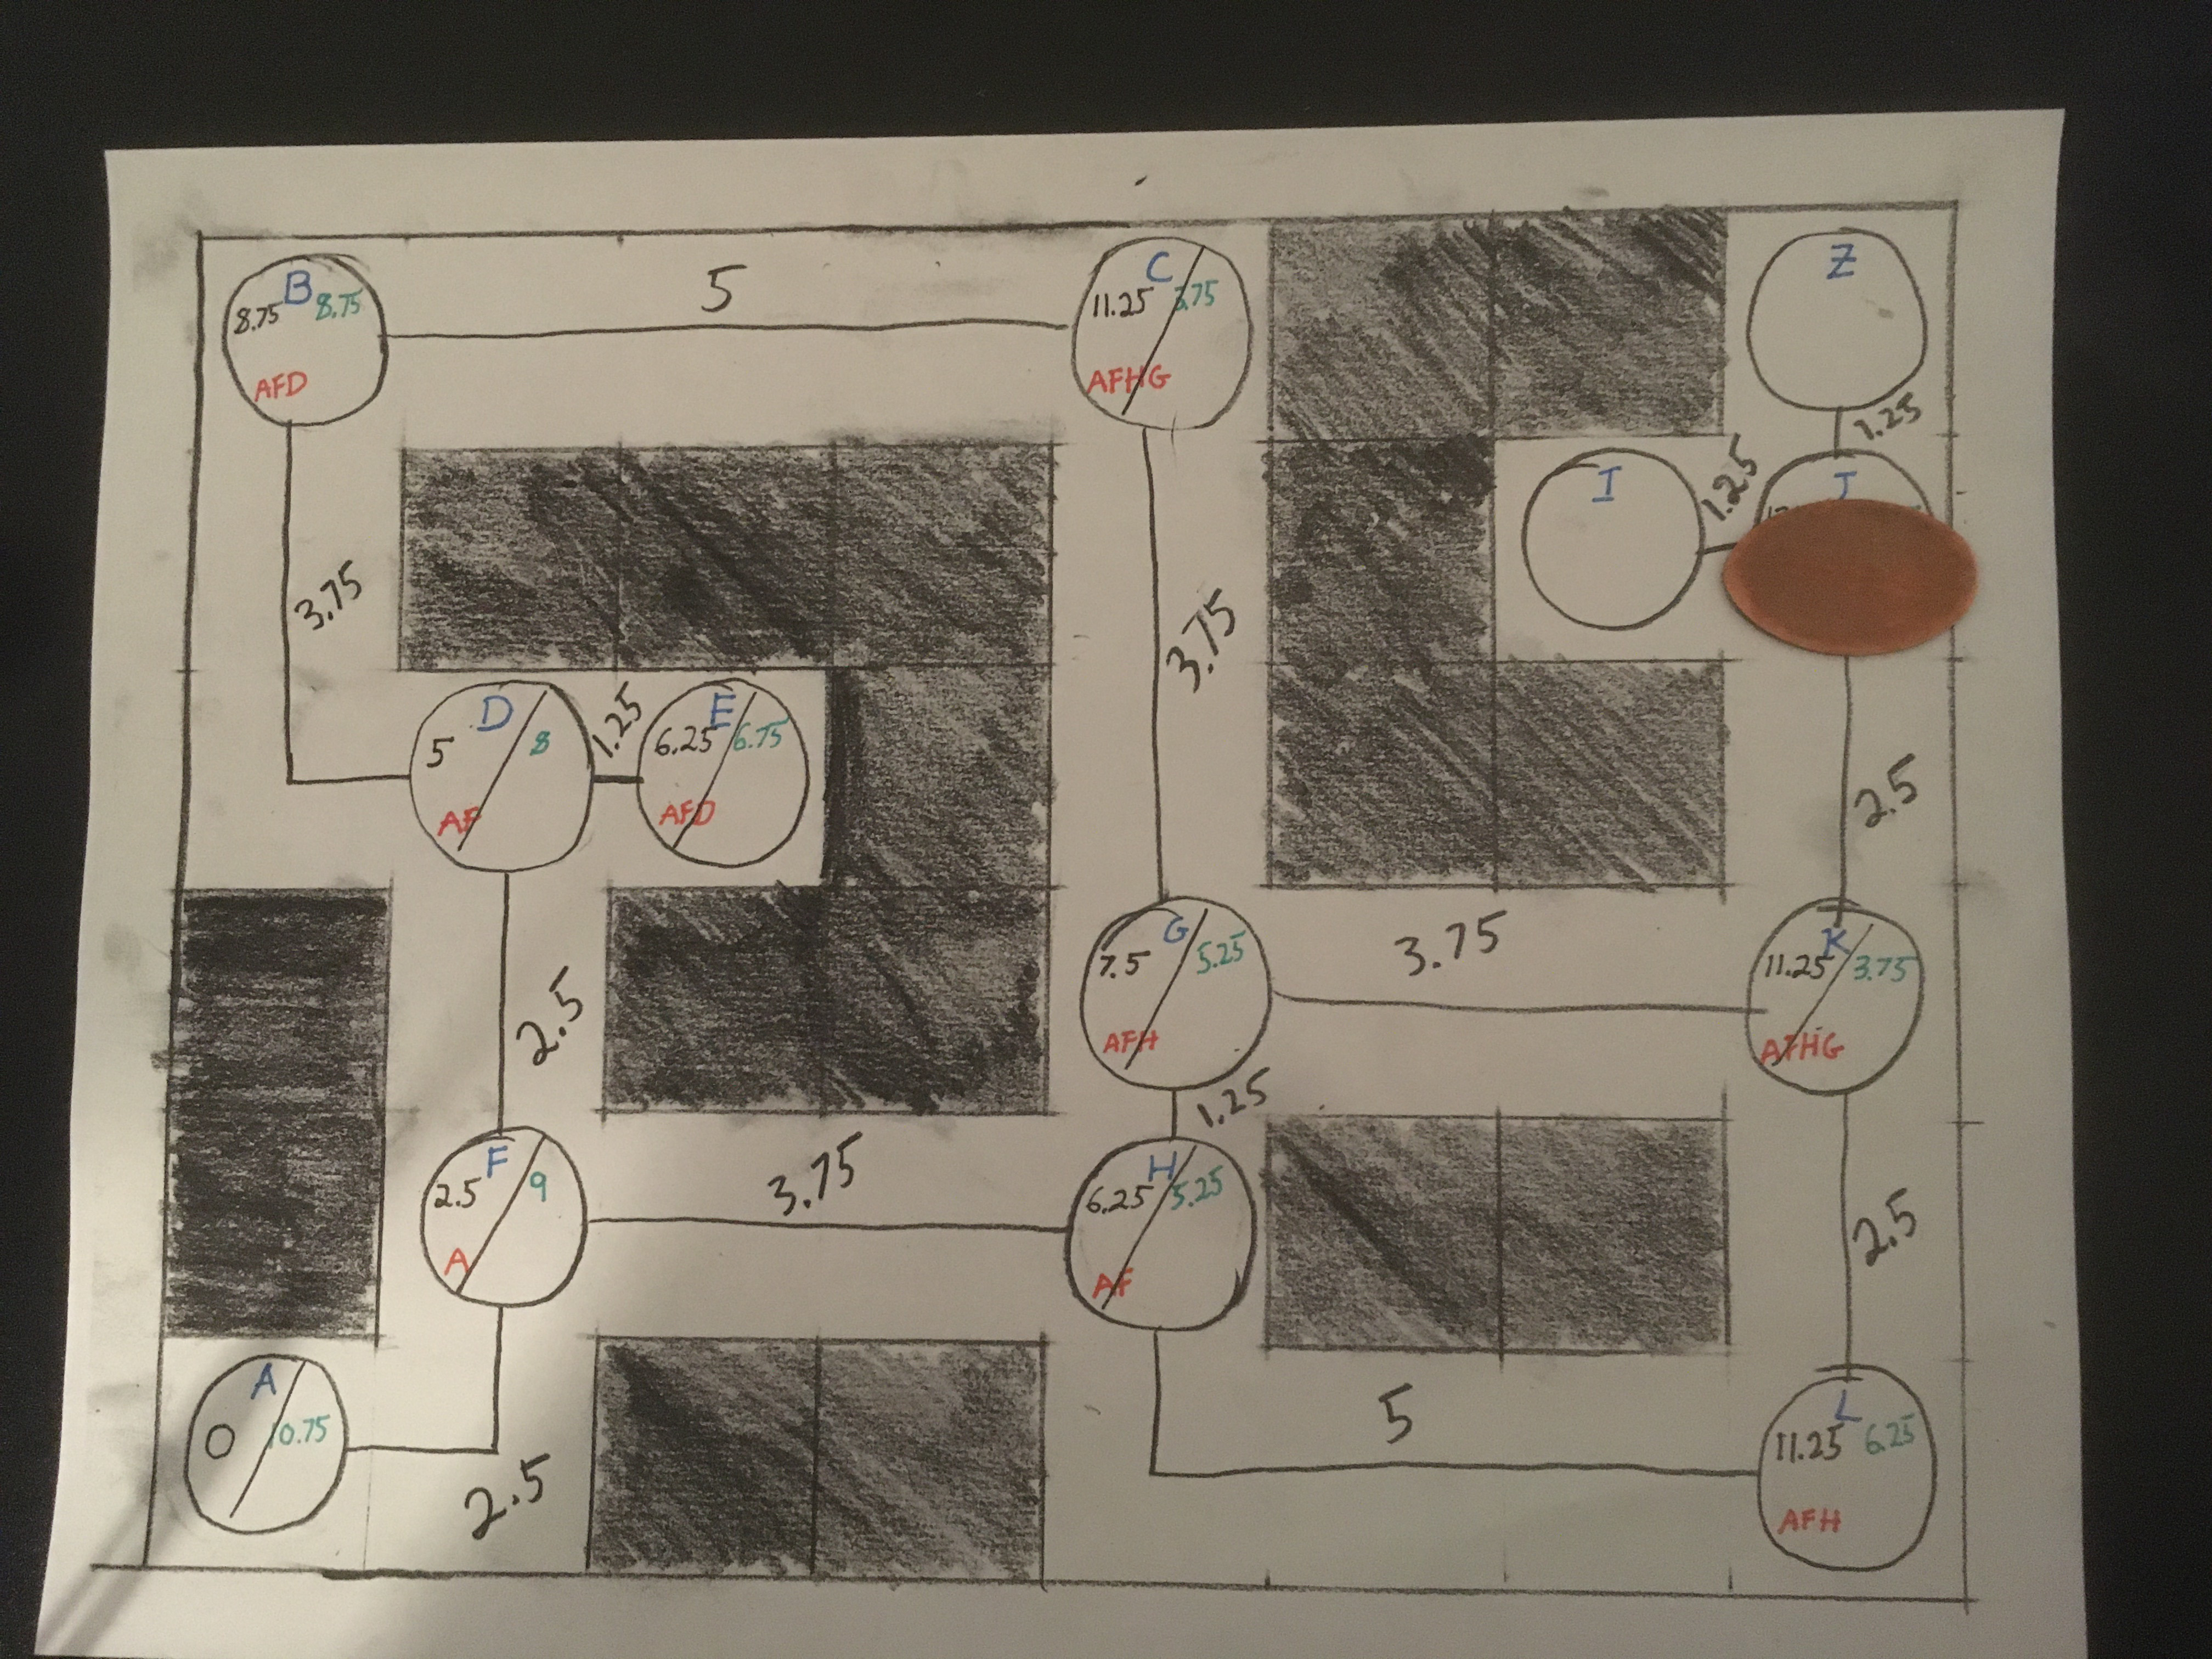 B
8.75 8.75
AFD
5
C
11.25 3.75
AFHG
Z
1.25
I
1.25
J
3.75
3.75
D
5 8
AF
1.25
E
6.25 6.75
AFD
2.5
G
7.5 5.25
AFH
3.75
K
11.25 3.75
AFHG
2.5
1.25
F
2.5 9
A
3.75
H
6.25 5.25
AF
2.5
A
0 10.75
2.5
5
L
11.25 6.25
AFH